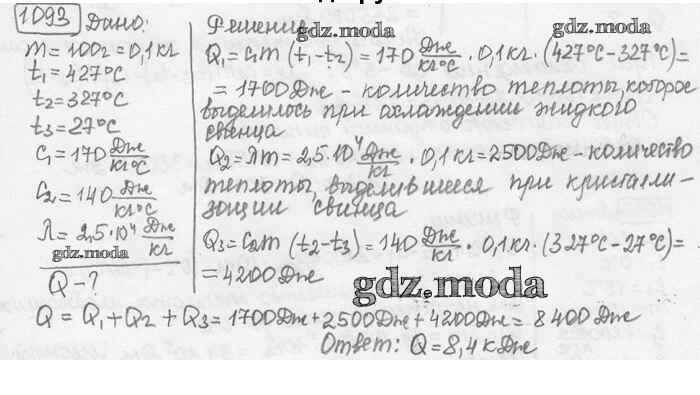 1093 Дано:
m = 100г = 0,1кг
t₁ = 427°C
t₂ = 327°C
t₃ = 27°C
C₁ = 170 Дж/кг°C
C₂ = 140 Дж/кг°C
λ = 2,5·10⁴ Дж/кг
gdz.moda
Q - ?
Решение
gdz.moda
gdz.moda
Q₁ = C₁m (t₁ - t₂) = 170 Дж/кг°C · 0,1кг · (427°C - 327°C) =
= 1700Дж - количество теплоты, которое
выделилось при охлаждении жидкого
свинца
Q₂ = λm = 2,5·10⁴ Дж/кг · 0,1кг = 2500Дж - количество
теплоты, выделившееся при кристалли-
зации свинца
Q₃ = C₂m (t₂ - t₃) = 140 Дж/кг · 0,1кг · (327°C - 27°C) =
= 4200Дж
gdz.moda
Q = Q₁ + Q₂ + Q₃ = 1700Дж + 2500Дж + 4200Дж = 8400Дж
Ответ: Q = 8,4кДж